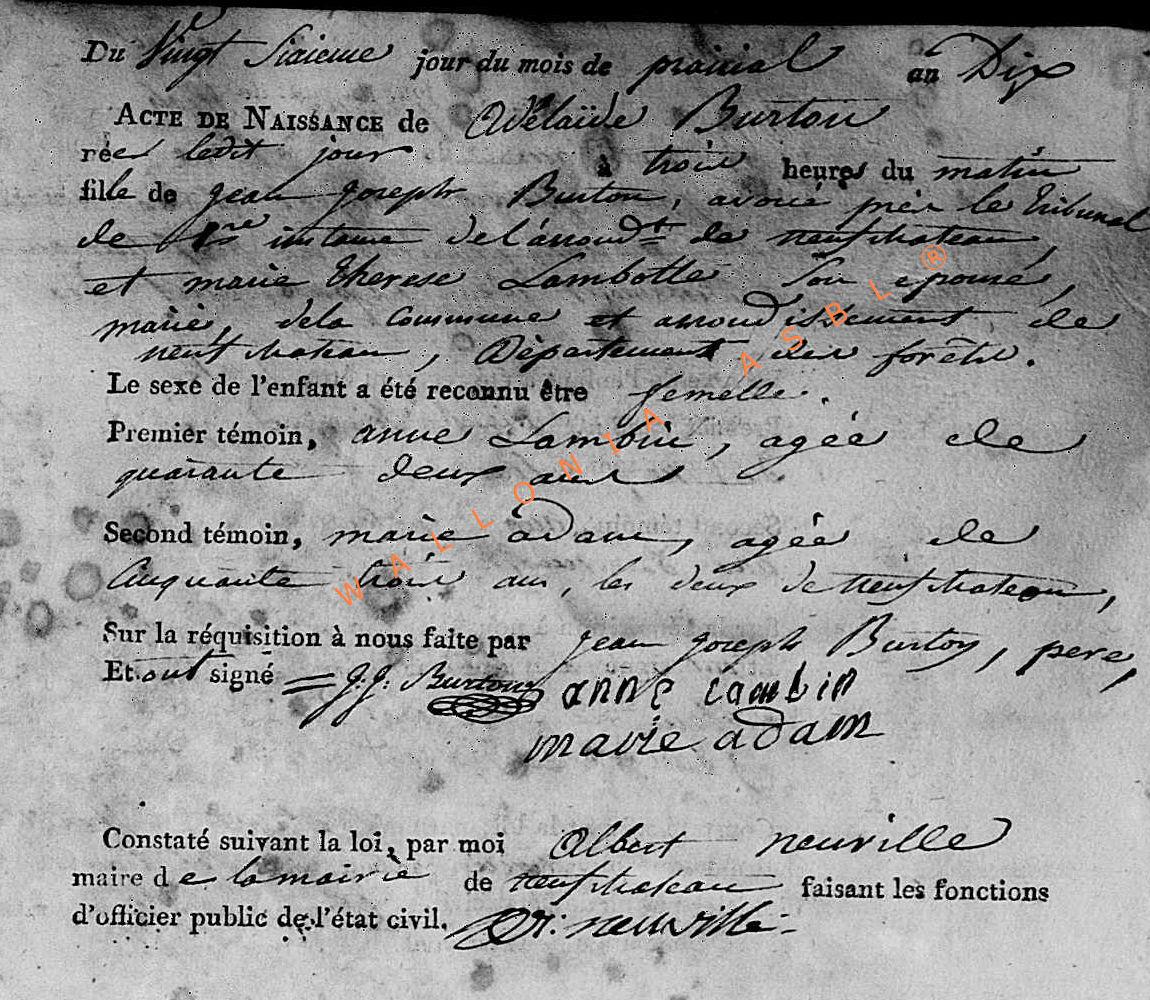 Du Vingt Sixieme jour du mois de prairial an Dix
ACTE DE NAISSANCE de Adélaïde Burton
née ledit jour à trois heures du matin
fille de jean joseph Burton, avoué près le Tribunal
de 1re instance de l'arrondt de neufchateau,
et marie therese Lambotte son epouse,
mariés, dela Commune et arrondissement de
neufchateau, Département des forêts.
Le sexe de l'enfant a été reconnu être femelle.
Premier témoin, anne Lambin, agée de
quarante deux ans.
Second témoin, marie adam, agée de
Cinquante trois ans, les deux de neufchateau,
Sur la réquisition à nous faite par jean joseph Burton, pere,
Et ont signé J. J. Burton anne Lambin
marie adam
Constaté suivant la loi, par moi Albert neuville
maire de la mairie de neufchateau faisant les fonctions
d'officier public de l'état civil. neuville
WALLONIA ASBL ®